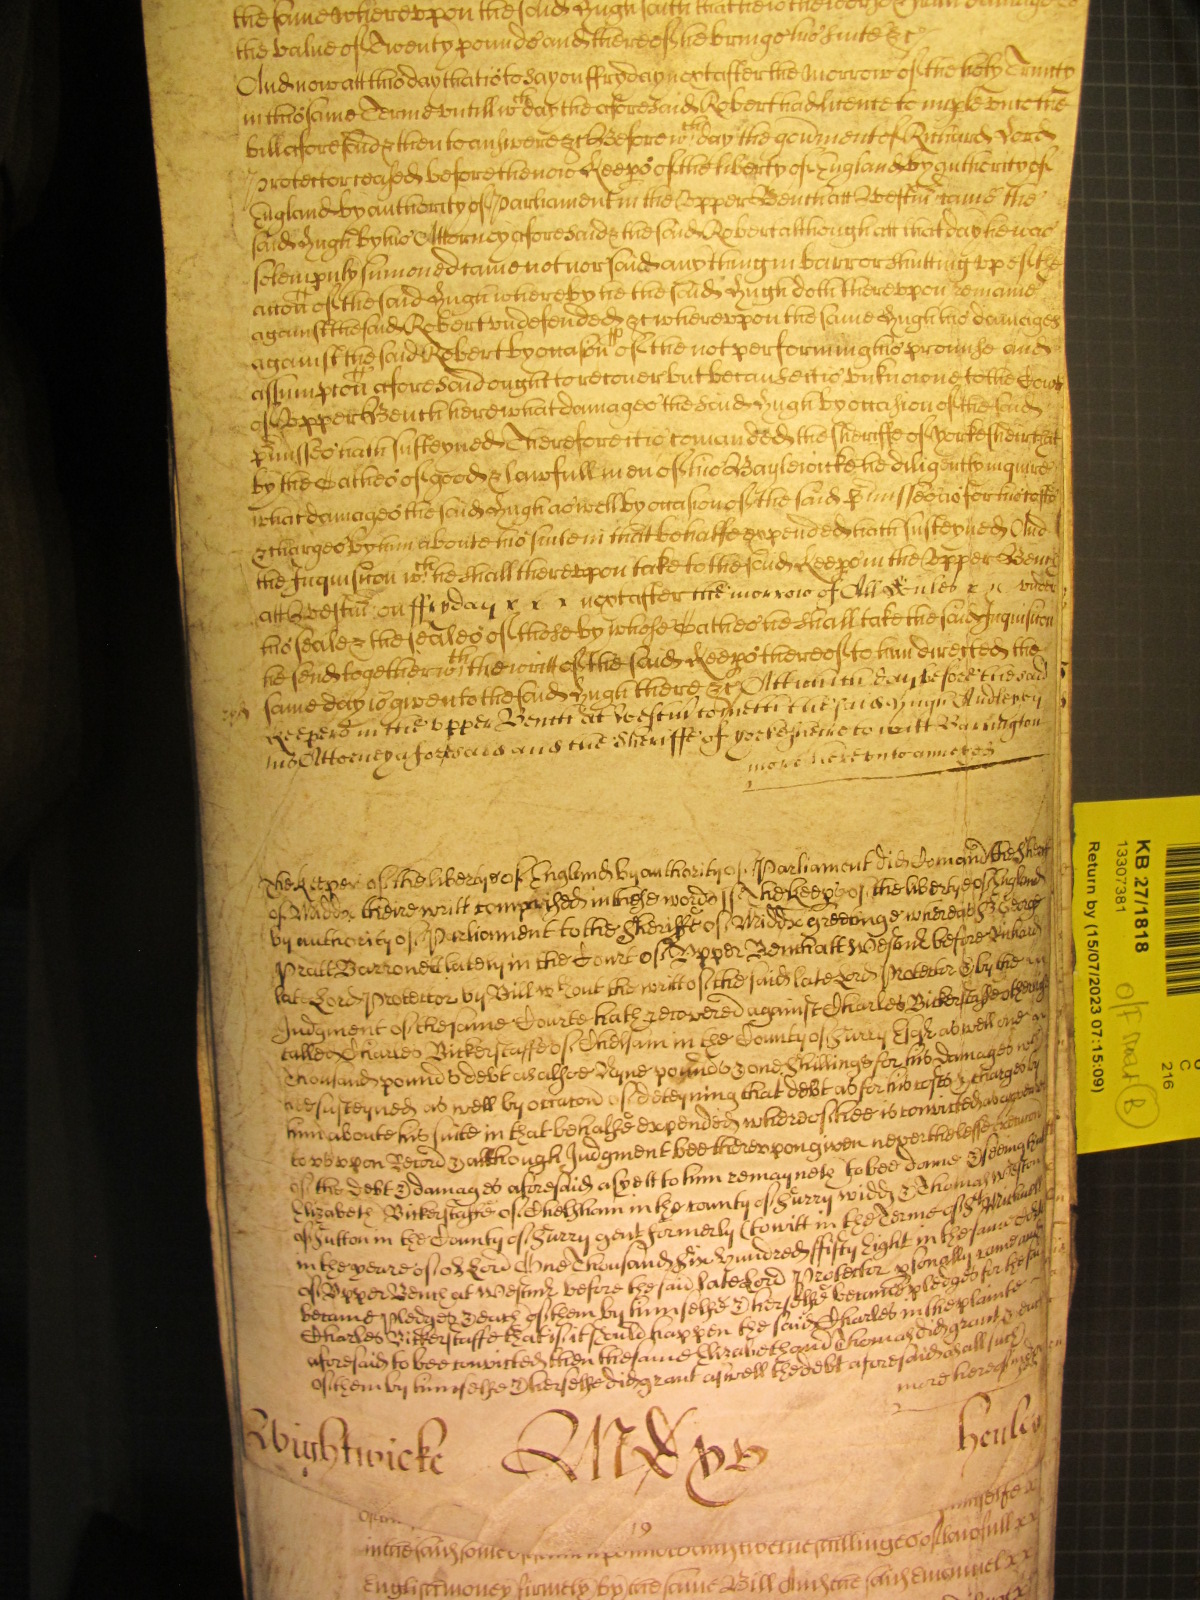 the same whereupon the said Hugh saith that he is the worse & hath damage to
the value of Twenty pounds and thereof he brings his Suite &c
And now att this day that is to say on ffryday next after the Morrow of the holy Trinity
in this same Terme untill wch day the aforesaid Robert had licence to imple unto the
bill aforesaid & then to answere &c Before wch day the govment of Richard Lord
Protector ceased before the now Keeps of the liberty of England by authority of
England by authority of Parliament in the Upper Bench att Westm came the
said Hugh by his Attorney aforesaid & the said Robert although att that day he was
solempnly sumoned came not nor said any thing in barr or shutting upp of the
accon of the said Hugh whereby he the said Hugh doth thereupon remaine
against the said Robert undefended &c wherevpon the same Hugh his damages
against the said Robert by occasion of the not performing his promise and
assumpcon aforesaid ought to recover but because it is unknowne to the Court
of Upper Bench here what damages the said Hugh by occasion of the said
pmisses hath susteyned Therefore it is comanded the Sheriffe of Yorkesheir that
by the Oathes of good & lawfull men of his Bayliwicke he diligently inquire
what damages the said Hugh as well by occasion of the said pmisses as for his costs
& charges by him aboute his suite in that behalfe expended hath susteyned And
the Inquisicon wch he shall thereupon take to the said Keeps in the Upper Bench
att Westm on ffryday x x x next after the morrow of All Soules x x under
his seale & the seales of those by whose Oathes he shall take the said Inquisicon
he send together wth the writt of the said Keeps thereof to him directed the
same day is given to the said Hugh there &c Att which day before the said
Keepers in the Upper Bench at Westm cometh the said Hugh Audley by
his Attorney aforesaid and the Sheriffe of Yorkesheire to witt Barrington
more hereunto annexed
The Keepers of the libertye of England by authority of Parliament did comand the Sheriff
of Middx theire writt comprised in these words ss The Keeps of the libertye of England
by authority of Parliament to the Sheriffe of Middx greetinge whereas Sr George
Pratt Barronett lately in the Court of Upper Bench att Westmr before Richard
late Lord Protector by Bill without the writt of the said late Lord Protector & by the
Judgment of the same Courte hath recovered against Charles Bickerstaffe otherwise
called Charles Bickerstaffe of Chelsam in the County of Surry Esqr as well one
Thousand pounds debt as alsoe Nyne pounds & one shillinge for his damages wch
hee susteyned as well by occation of deteyning that debt as for his costs & charges by
him aboute his suite in that behalfe expended whereof hee is convicted as appeareth
to us upon Record & although Judgment bee thereupon given neverthelesse Execution
of the debt & damages aforesaid as yett to him remayneth to bee donne & seeing that
Elizabeth Bickerstaffe of Chelsham in the county of Surry widd & Thomas Weston
of Sutton in the County of Surry gent formerly (to witt in the Terme of St Michaell
in the yeare of or Lord One Thousand Six hundred ffifty Eight in the same Court
of Upper Bench at Westmr before the said late Lord Protector psonally came and
became Pledges & each of them by himselfe & herselfe became pledges for the said
Charles Bickerstaffe that if it should happen the said Charles in the plainte
aforesaid to bee convicted then the same Elizabeth and Thomas did grant & each
of them by himselfe & herselfe did grant as well the debt aforesaid as all such
more hereof
Wightwicke
Henley
19
twelve shillinges of lawfull xx
English money firmely by the same Bill And the said Emanuel xx
KB 27/1818
13307381
Return by (15/07/2023 07:15:09)
C
216